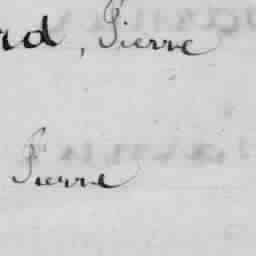 rd, Pierre
Pierre